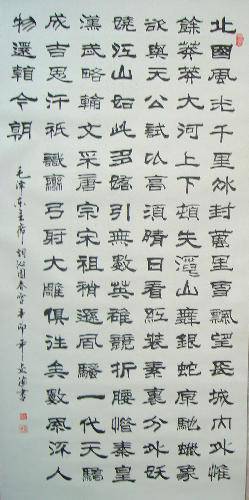 北國風光千里冰封萬里雪飄望長城內外惟
餘莽莽大河上下頓失滔滔山舞銀蛇原馳蠟象
欲與天公試比高須晴日看紅裝素裹分外妖
嬈江山如此多嬌引無數英雄競折腰惜秦皇
漢武略輸文采唐宗宋祖稍遜風騷一代天驕
成吉思汗祇識彎弓射大雕俱往矣數風流人
物還看今朝
毛澤東主席詞沁園春雪辛卯年書